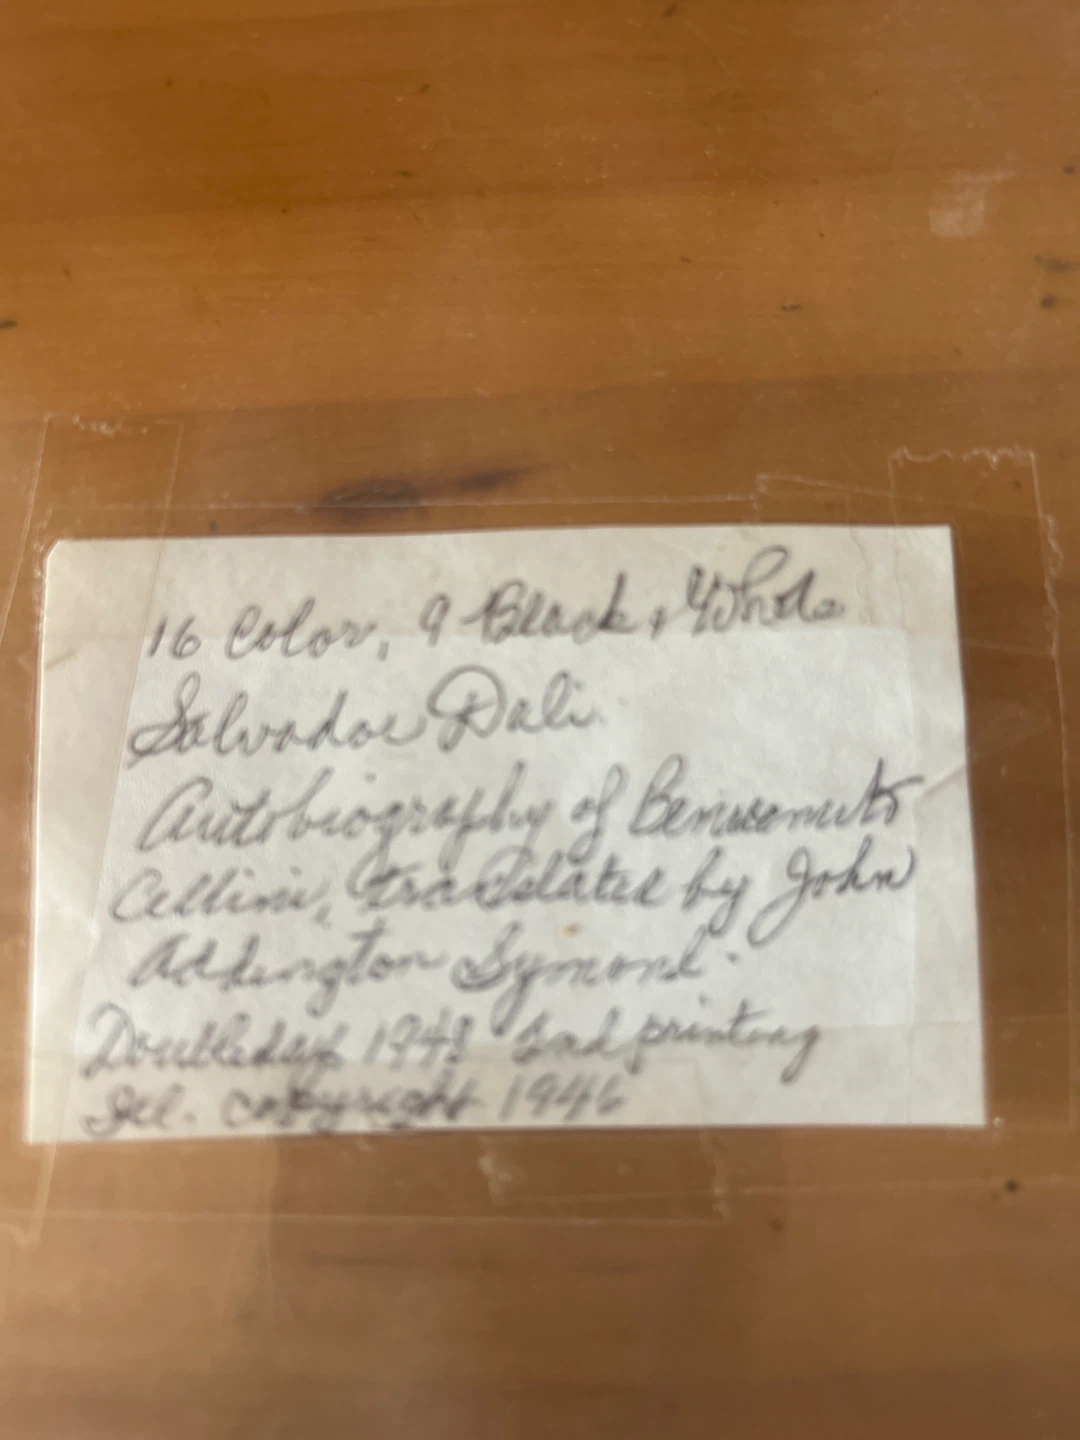 16 Color, 9 Black & White
Salvador Dali
Autobiography of Benvenuto
Cellini, translated by John
Addington Symond.
Doubleday 1948 2nd printing
Ill. copyright 1946